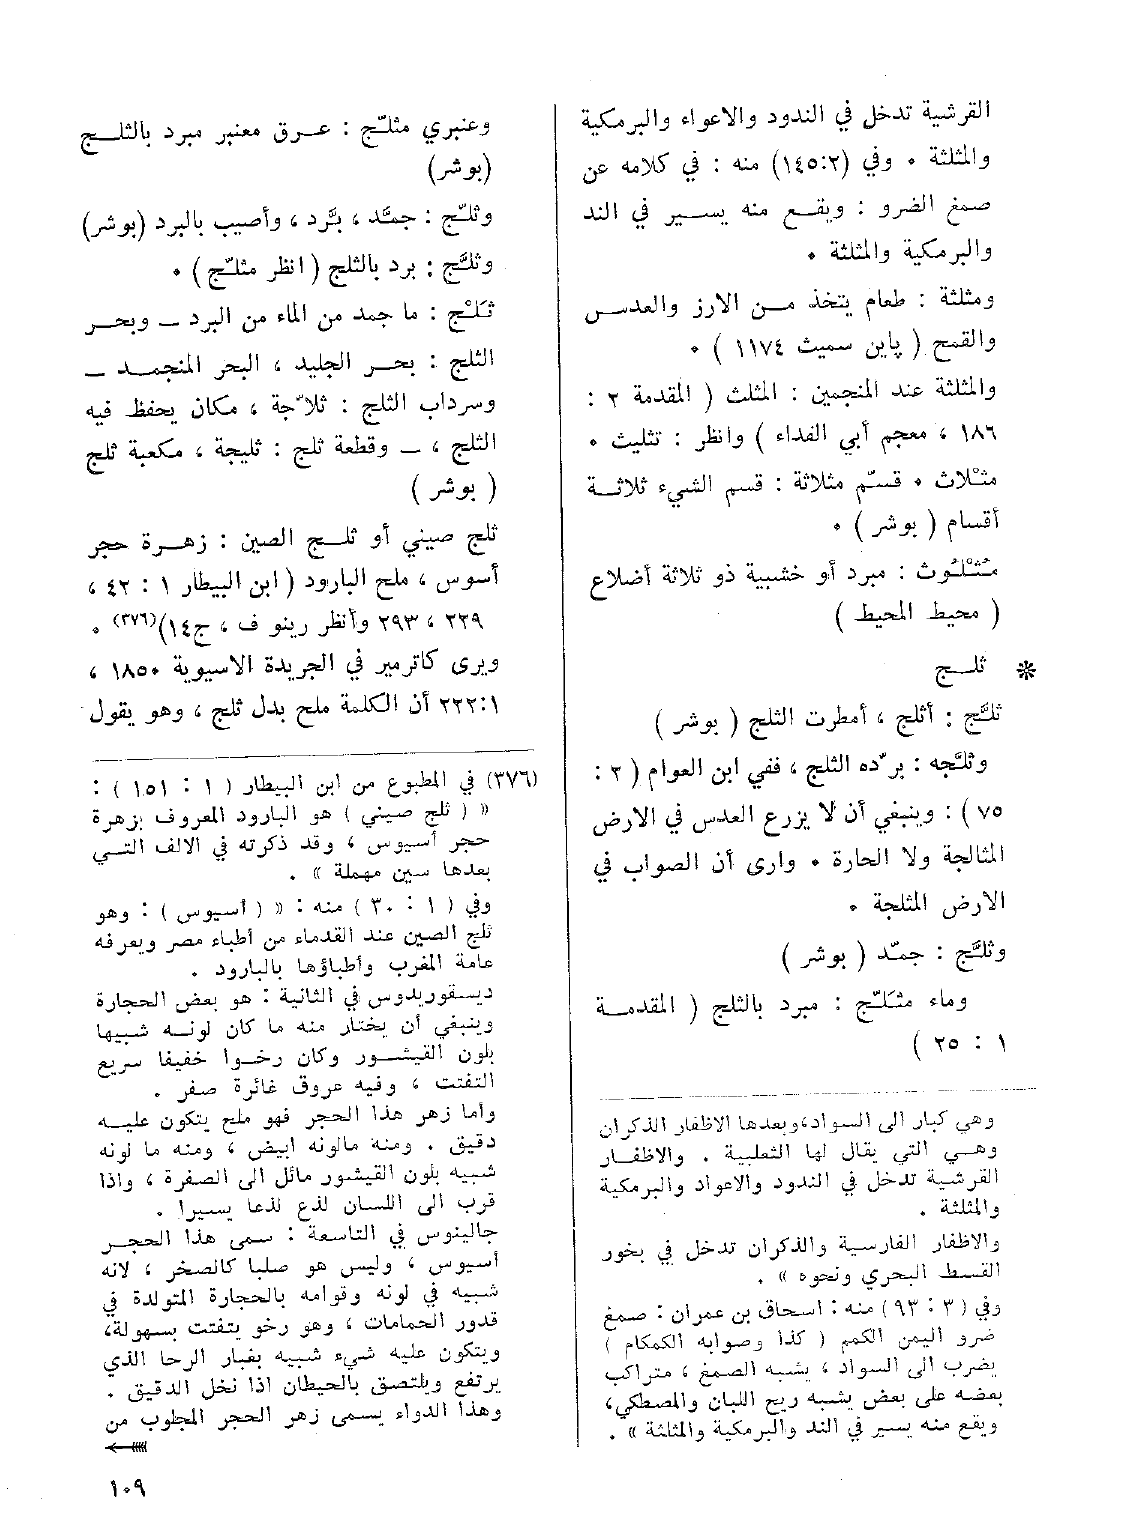 القرشية تدخل في الندود والاعواد والبرمكية
والمثلثة • وفي (١٤٥:٢) منه : في كلامه عن
صمغ الضرو : ويقـع منه يسـير في الند
والبرمكية والمثلثة •
ومثلثة : طعام يتخذ مـن الارز والعدس
والقمح ( پاين سميث ١١٧٤ ) •
والمثلثة عند المنجمين : المثلث ( المقدمة ٢ :
١٨٦ ، معجم أبي الفداء ) وانظر : تثليث •
مثْلاث • قسّم مثلاثة : قسم الشيء ثلاثـة
أقسام ( بوشر ) •
مَثْلُوث : مبرد أو خشبية ذو ثلاثة أضلاع
( محيط المحيط )
* ثلـج
ثلَّج : أثلج ، أمطرت الثلج ( بوشر )
وثلَّجه : برّده الثلج ، ففي ابن العوام ( ٢ :
٧٥ ) : وينبغي أن لا يزرع العدس في الارض
المثالجة ولا الحارة • وارى أن الصواب في
الارض المثلجة •
وثلَّج : جمّد ( بوشر )
وماء مثـَلّج : مبرد بالثلج ( المقدمـة
١ : ٢٥ )
وهي كبار الى السواد،وبعدها الاظفار الذكران
وهـي التي يقال لها الثعلبية . والاظفـار
القرشية تدخل في الندود والاعواد والبرمكية
والمثلثة .
والاظفار الفارسية والذكران تدخل في بخور
القسط البحري ونحوه » .
وفي ( ٣ : ٩٣ ) منه : اسحاق بن عمران : صمغ
ضرو اليمن الكمم ( كذا وصوابه الكمكام )
يضرب الى السواد ، يشبه الصمغ ، متراكب
بعضه على بعض يشبه ريح اللبان والمصطكي،
ويقع منه يسير في الند والبرمكية والمثلثة » .
وعنبري مثلّج : عـرق معنبر مبرد بالثلـج
(بوشر)
وثلّج : جمَّد ، برَّد ، وأصيب بالبرد (بوشر)
وثلَّج : برد بالثلج ( انظر مثلّج ) •
ثَلْج : ما جمد من الماء من البرد ــ وبحـر
الثلج : بحـر الجليد ، البحر المنجمـد ــ
وسرداب الثلج : ثلاّجة ، مكان يحفظ فيه
الثلج ، ــ وقطعة ثلج : ثليجة ، مكعبة ثلج
( بوشر )
ثلج صيني أو ثلـج الصين : زهـرة حجر
أسوس ، ملح البارود ( ابن البيطار ١ : ٤٢ ،
٢٢٩ ، ٢٩٣ وأنظر رينو ف ، ج١٤)(٣٧٦) •
ويرى كاترمير في الجريدة الاسيوية ١٨٥٠ ،
٢٢٢:١ أن الكلمة ملح بدل ثلج ، وهو يقول
(٣٧٦) في المطبوع من ابن البيطار ( ١ : ١٥١ ) :
« ( ثلج صيني ) هو البارود المعروف بزهرة
حجر أسيوس ، وقد ذكرته في الالف التـي
بعدها سين مهملة » .
وفي ( ١ : ٣٠ ) منه : « ( أسيوس ) : وهو
ثلج الصين عند القدماء من أطباء مصر ويعرفه
عامة المغرب وأطباؤها بالبارود .
ديسقوريدوس في الثانية : هو بعض الحجارة
وينبغي أن يختار منه ما كان لونـه شبيها
بلون القيشـور وكان رخـوا خفيفا سريع
التفتت ، وفيه عروق غائرة صفر .
وأما زهر هـذا الحجر فهو ملح يتكون عليـه
دقيق . ومنه مالونه ابيض ، ومنه ما لونه
شبيه بلون القيشور مائل الى الصفرة ، واذا
قرب الى اللسان لذع لذعا يسيرا .
جالينوس في التاسعة : سمى هذا الحجـر
أسيوس ، وليس هو صلبا كالصخر ، لانه
شبيه في لونه وقوامه بالحجارة المتولدة في
قدور الحمامات ، وهو رخو يتفتت بسهولة،
ويتكون عليه شيء شبيه بغبار الرحا الذي
يرتفع ويلتصق بالحيطان اذا نخل الدقيق .
وهذا الدواء يسمى زهر الحجر المجلوب من
١٠٩